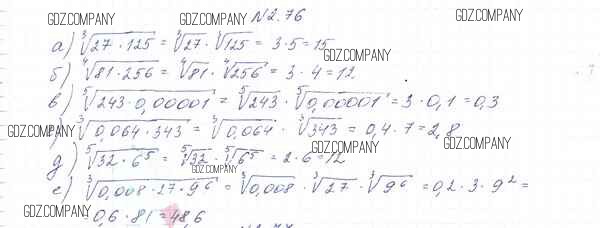 GDZ.COMPANY GDZ.COMPANY №2.76 GDZ.COMPANY
а) ∛(27·125) = ∛27·∛125 = 3·5=15
GDZ.COMPANY
б) ∜(81·256) = ∜81·∜256 = 3·4=12
в) ⁵√(243·0,00001) = ⁵√243·⁵√0,00001 = 3·0,1=0,3
GDZ.COMPANY г) ∛(0,064·343) = ∛0,064·∛343 = 0,4·7=2,8
GDZ.COMPANY GDZ.COMPANY
д) ⁵√(32·6⁵) = ⁵√32·⁵√6⁵ = 2·6=12
GDZ.COMPANY
е) ∛(0,008·27·9⁶) = ∛0,008·∛27·∛9⁶ = 0,2·3·9² =
GDZ.COMPANY
= 0,6·81=48,6